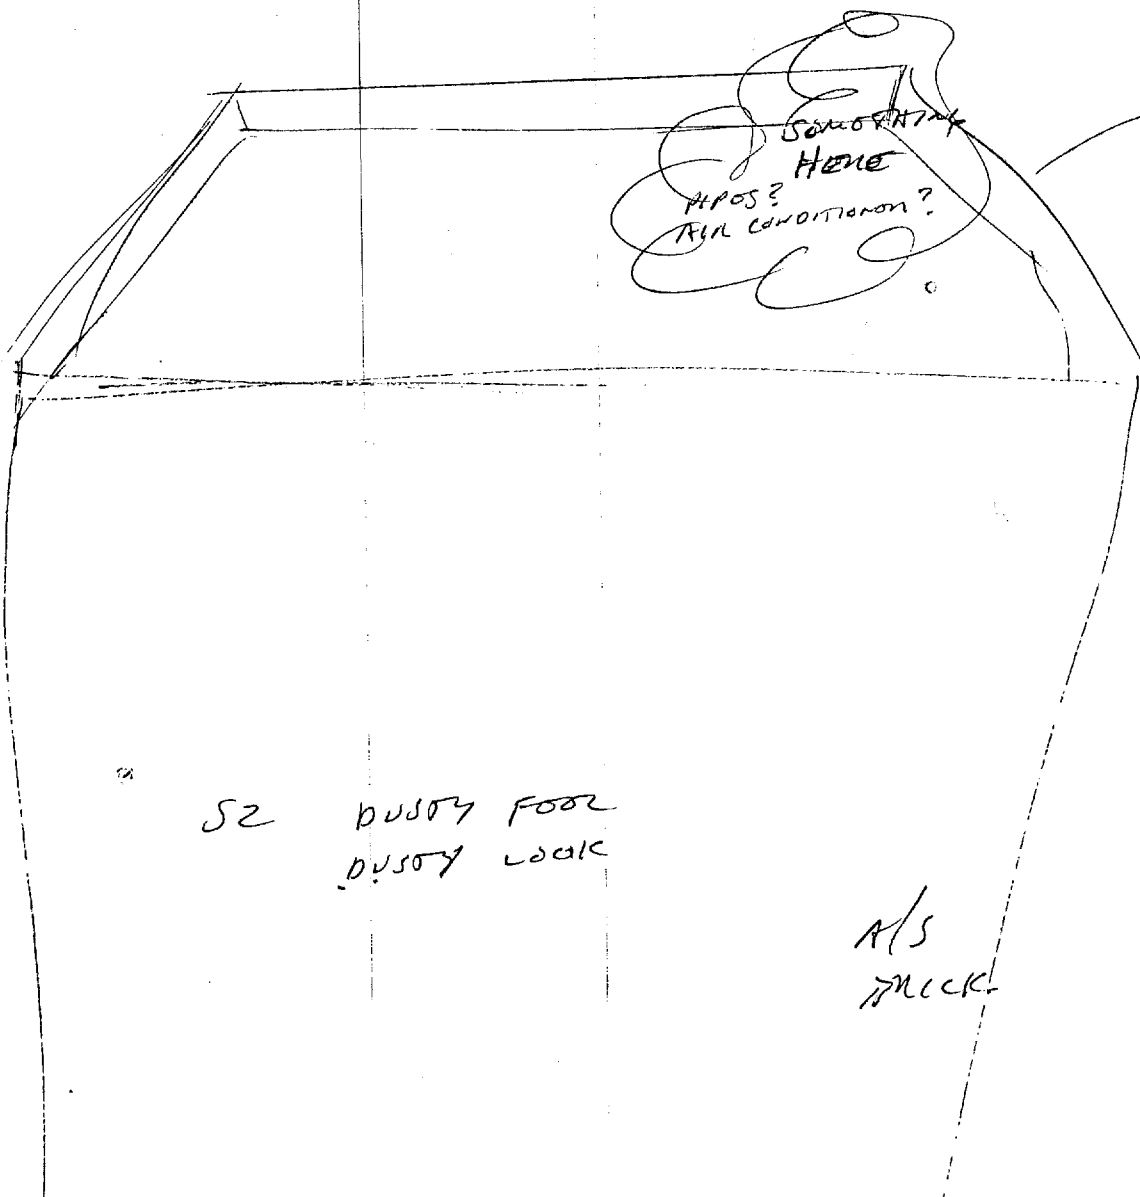 SOMETHING
HERE
PIPES?
AIR CONDITIONER?
S2 DUSTY FEEL
DUSTY LOOK
A/S
TRICK